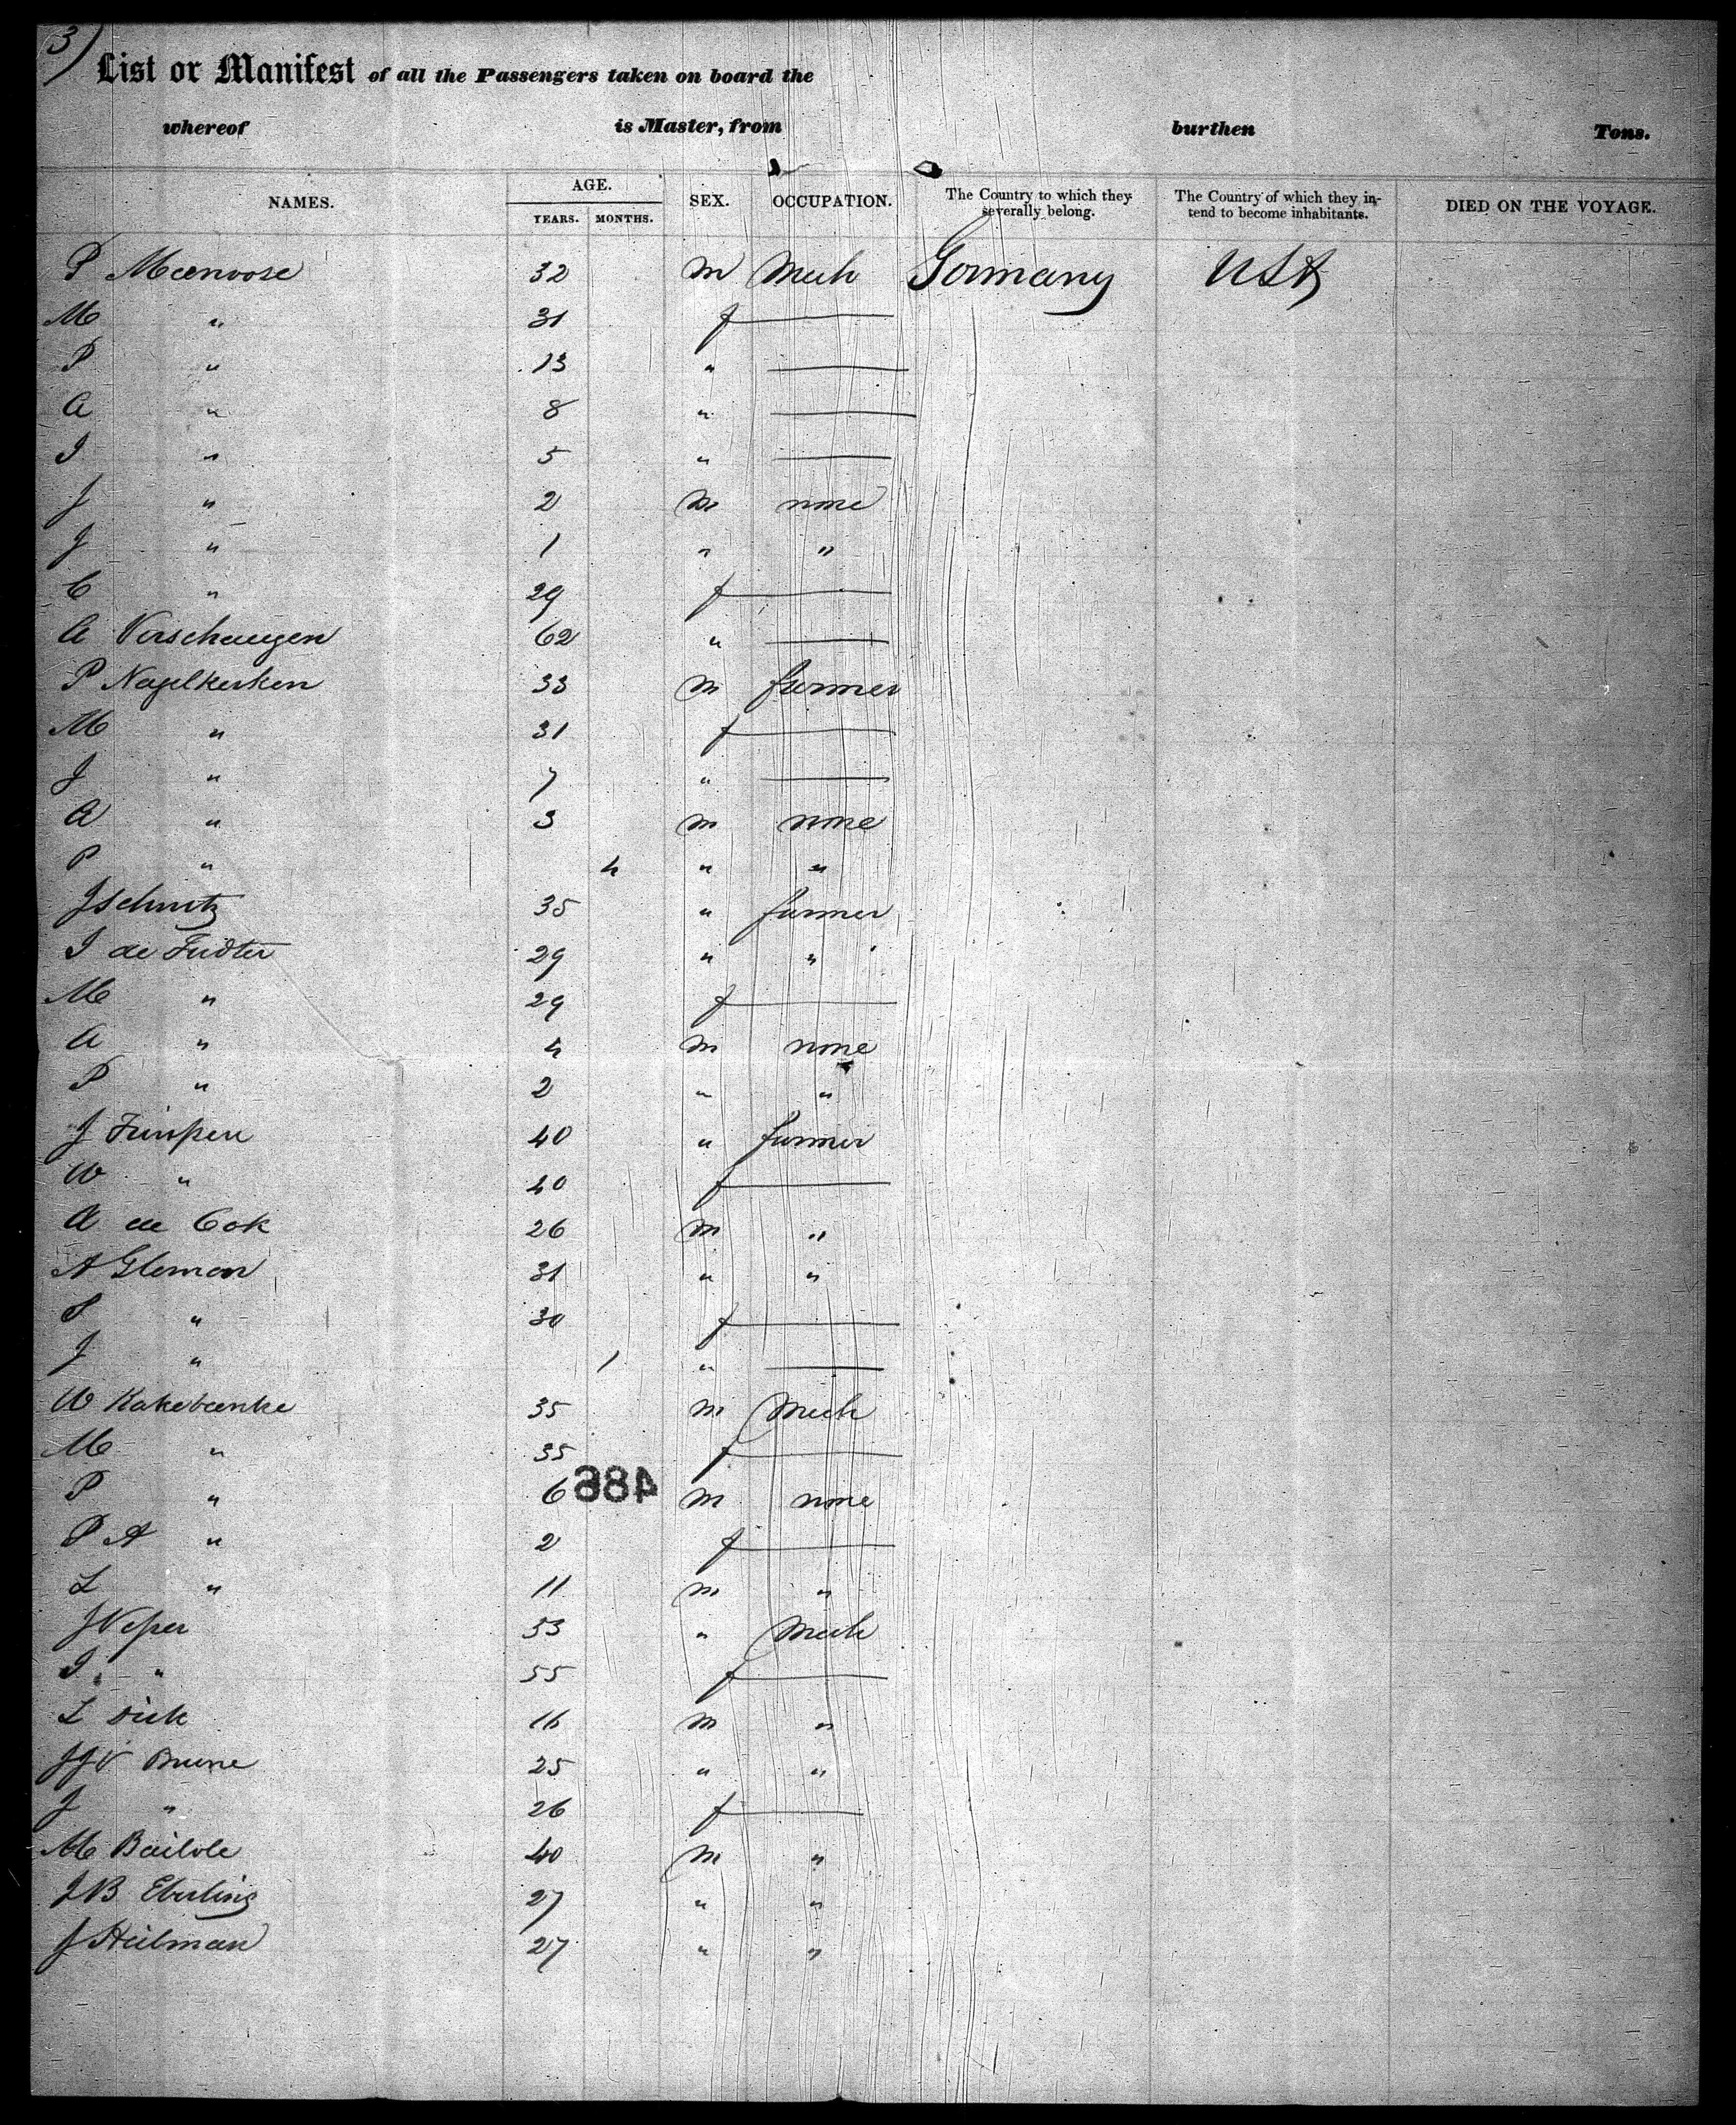 3)
List or Manifest of all the Passengers taken on board the
whereof is Master, from burthen Tons.
NAMES. AGE. YEARS. MONTHS. SEX. OCCUPATION. The Country to which they severally belong. The Country of which they intend to become inhabitants. DIED ON THE VOYAGE.
P Meenvose 32 m Mech Germany USA
M " 31 f —
P " 13 " —
A " 8 " —
I " 5 " —
J " 2 m none
J " 1 " "
C " 29 f —
A Verschuugen 62 " —
P Nagelkerken 33 m farmer
M " 31 f —
J " 7 " —
A " 3 m none
P " 4 " "
J Schmitz 35 " farmer
I de 29 " "
M " 29 f —
A " 4 m none
P " 2 " "
J 40 " farmer
W " 40 f —
A de Cok 26 m "
A Gleman 31 " "
P " 30 f —
J " 1 " —
W Kakebeenke 35 m Mech
M " 35 f —
P " 6 m none
486
P A " 2 f —
L " 11 m "
J Vesper 53 " Mech
I " 55 f —
L Dick 16 m "
JJV Brune 25 " "
J " 26 f —
M 40 m "
JB Eberling 27 " "
J Heilman 27 " "